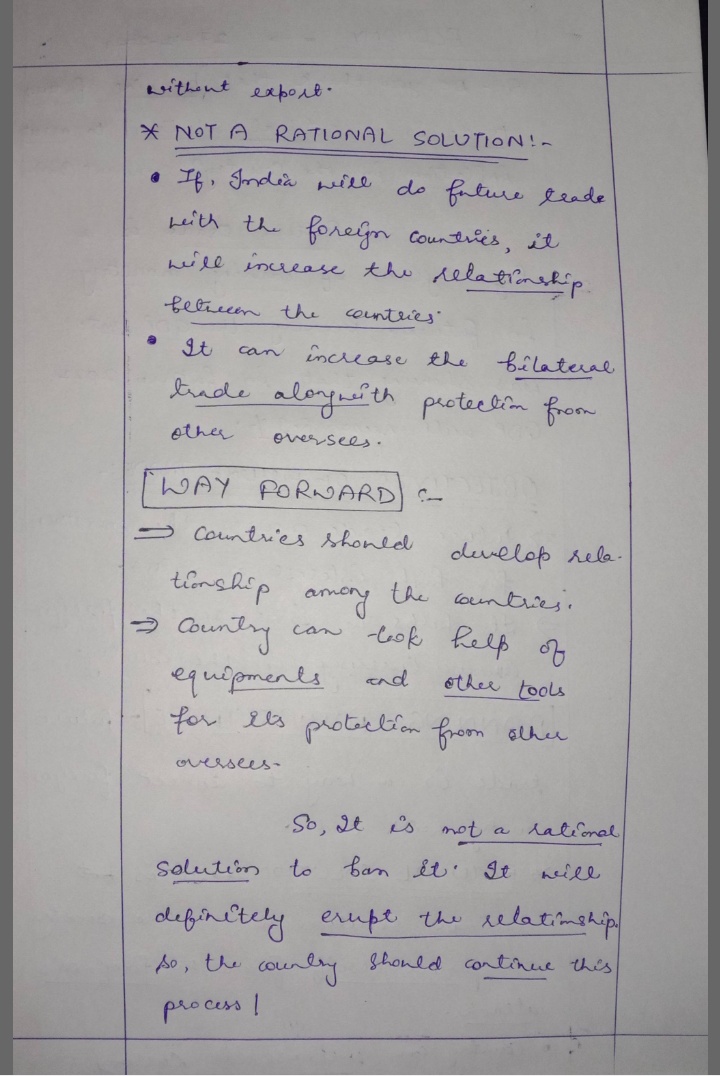 without export.
* NOT A RATIONAL SOLUTION:-
• If, India will do future trade
with the foreign countries, it
will increase the relationship
between the countries.
• It can increase the bilateral
trade alongwith protection from
other oversees.
WAY FORWARD :-
⇒ Countries should develop rela-
tionship among the countries.
⇒ Country can took help of
equipments and other tools
for its protection from other
oversees-
So, It is not a rational
solution to ban it. It will
definitely erupt the relationship.
So, the country should continue this
process!